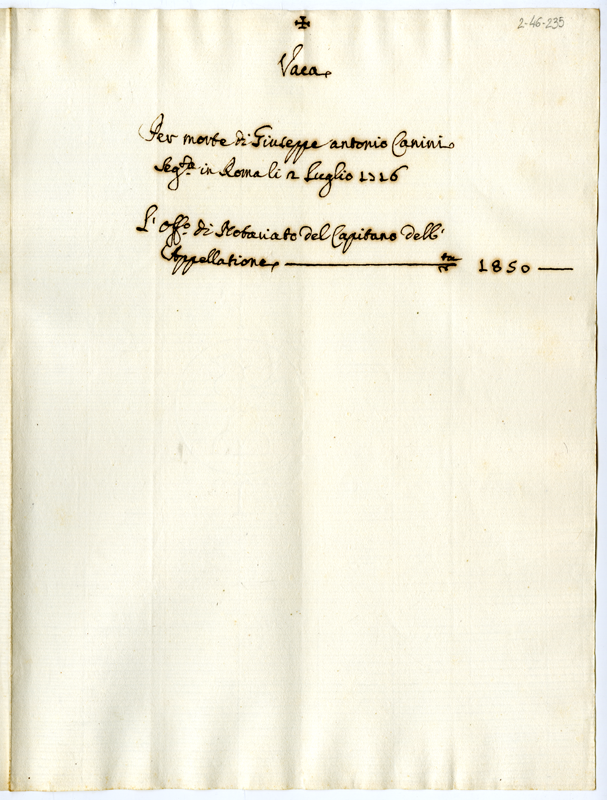 ✠
2-46-235
Vaca
Per morte di Giuseppe antonio Canini
Seg.ta in Roma li 2 Luglio 1716
L' Off.o di Notariato del Capitano dell'
Appellatione 1850